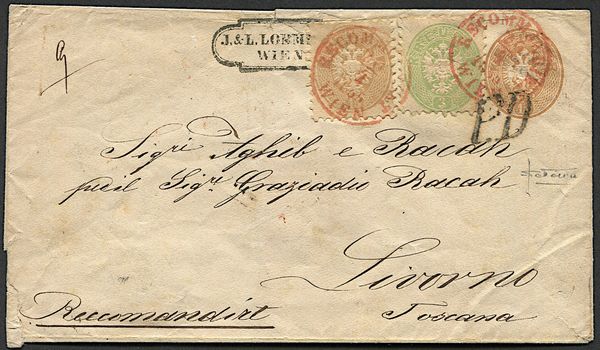 J. & L. LOEM
WIEN
RECOM
WIEN
3
RECOMM
P.D
Sigri Aghib e Racah
Sigr Graziadio Racah
Livorno
Toscana
Reccomandirt